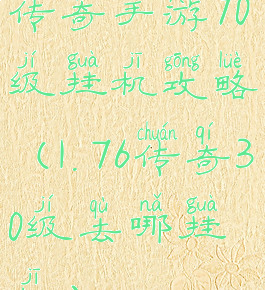 传奇手游70
jí guà jī gōng lüè
级挂机攻略
chuán qí
(1.76传奇3
jí qù nǎ guà
0级去哪挂
jī